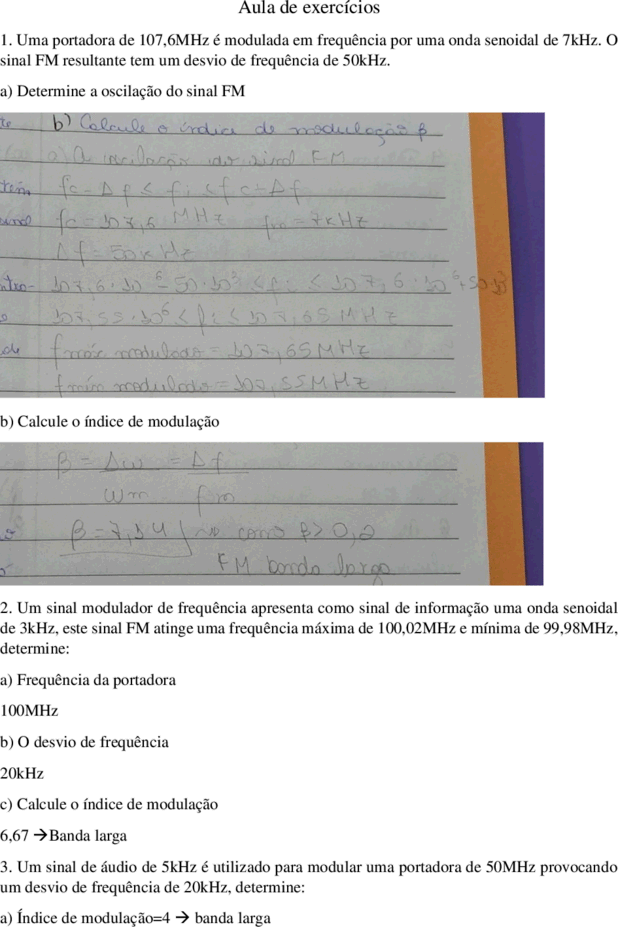 Aula de exercícios
1. Uma portadora de 107,6MHz é modulada em frequência por uma onda senoidal de 7kHz. O
sinal FM resultante tem um desvio de frequência de 50kHz.
a) Determine a oscilação do sinal FM
te b) Calcule o índice de modulação β
a) A oscilação do sinal FM
tem fc - Δf ≤ fi ≤ fc + Δf
fc = 107,6 MHz fm = 7kHz
Δf = 50KHz
107,6.10^6 - 50.10^3 ≤ fi ≤ 107,6.10^6 + 50.10^3
107,55.10^6 ≤ fi ≤ 107,65 MHz
de fmáx modulado = 107,65MHz
fmín modulado = 107,55MHz
b) Calcule o índice de modulação
β = Δω = Δf
ωm fm
β = 7,14 como β > 0,2
FM banda larga
2. Um sinal modulador de frequência apresenta como sinal de informação uma onda senoidal
de 3kHz, este sinal FM atinge uma frequência máxima de 100,02MHz e mínima de 99,98MHz,
determine:
a) Frequência da portadora
100MHz
b) O desvio de frequência
20kHz
c) Calcule o índice de modulação
6,67 →Banda larga
3. Um sinal de áudio de 5kHz é utilizado para modular uma portadora de 50MHz provocando
um desvio de frequência de 20kHz, determine:
a) Índice de modulação=4 → banda larga